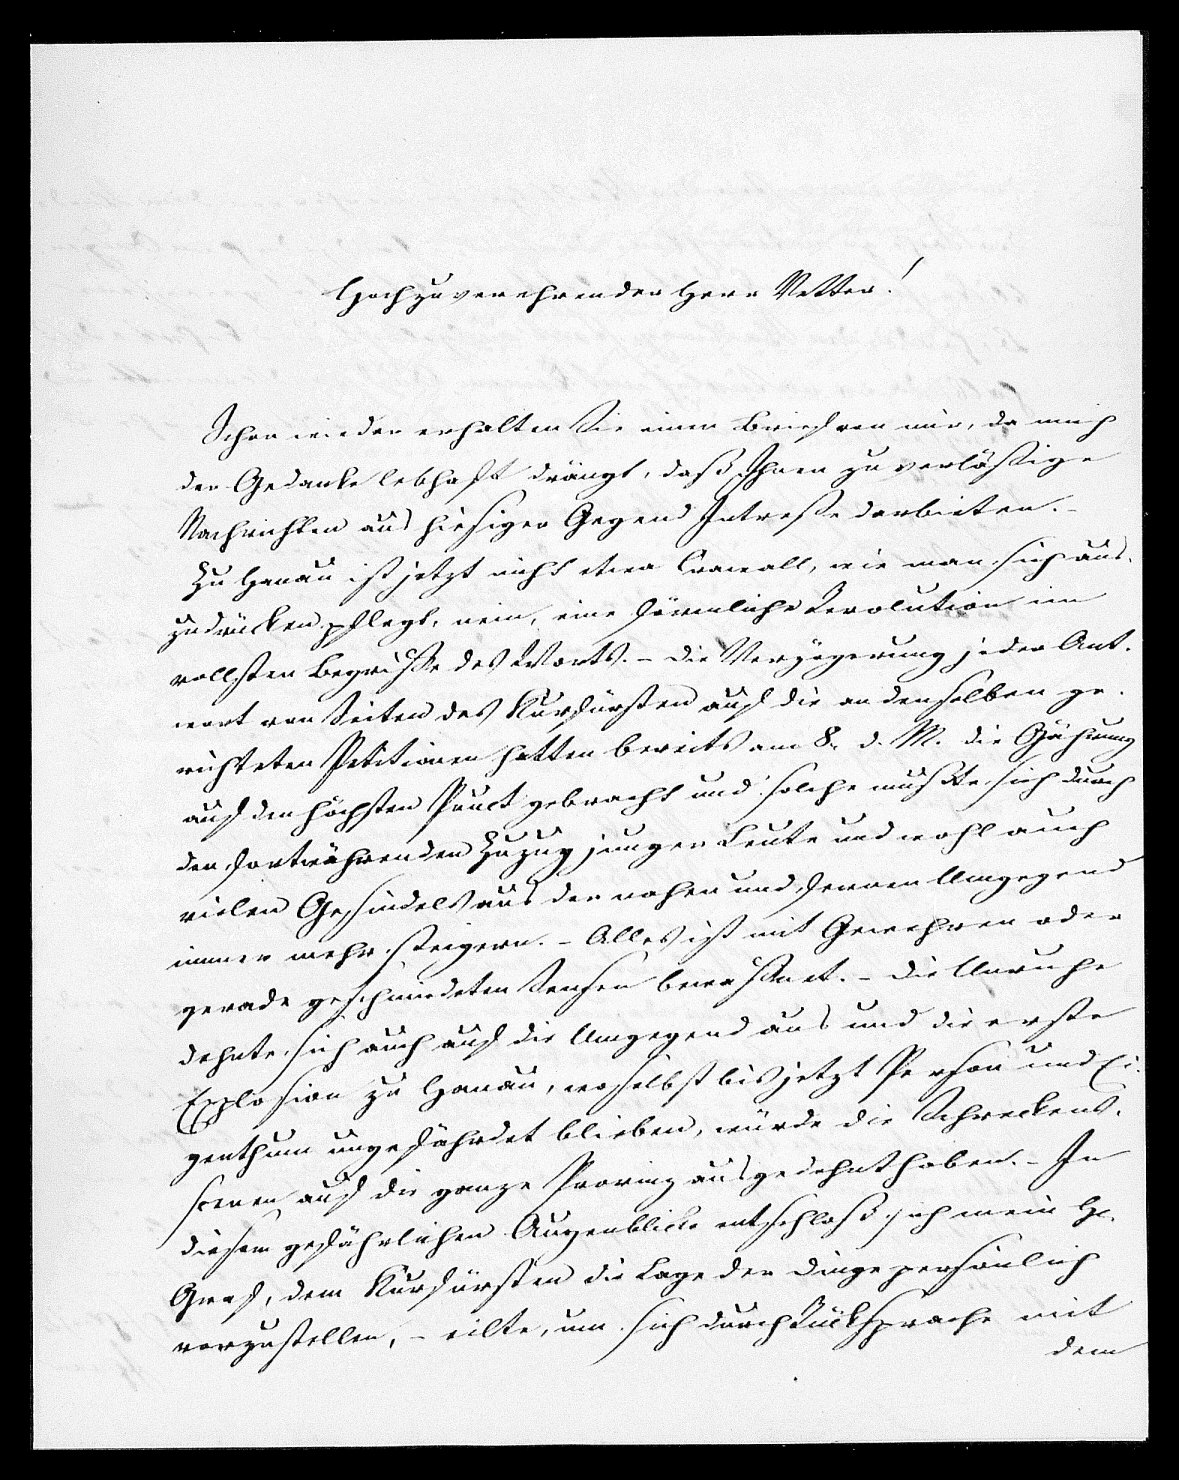 Hochzuverehrender Herr Vetter!
Schon wieder erhalten Sie einen Brief von mir, da mich
der Gedanke lebhaft drängt, daß Ihnen zuverläßige
Nachrichten aus hiesiger Gegend Intreße darbieten. -
Zu Hanau ist jetzt nicht etwa Crawall, wie man sich aus-
zudrücken pflegt, nein, eine förmliche Revolution im
vollsten Begriffe des Worts. - Die Verzögerung jeder Ant-
wort von Seiten des Kurfürsten auf die an denselben ge-
richteten Petitionen hatten bereits am 8. d. M. die Gährung
auf den höchsten Punct gebracht und solche mußte sich durch
den fortwährenden Zuzug junger Leute und wohl auch
vielen Gesindels aus der nahen und fernen Umgegend
immer mehr steigern. - Alles ist mit Gewehren oder
gerade geschmiedeten Sensen bewaffnet. - Die Unruhe
dehnte sich auch auf die Umgegend aus und die erste
Explosion zu Hanau, woselbst bis jetzt Person und Ei-
genthum ungefährdet blieben, würde die Schreckens-
scenen auf die ganze Provinz ausgedehnt haben. - In
diesem gefährlichen Augenblicke entschloß sich mein H.
Graf, dem Kurfürsten die Lage der Dinge persönlich
vorzustellen, - eilte, um sich durch Rücksprache mit
dem